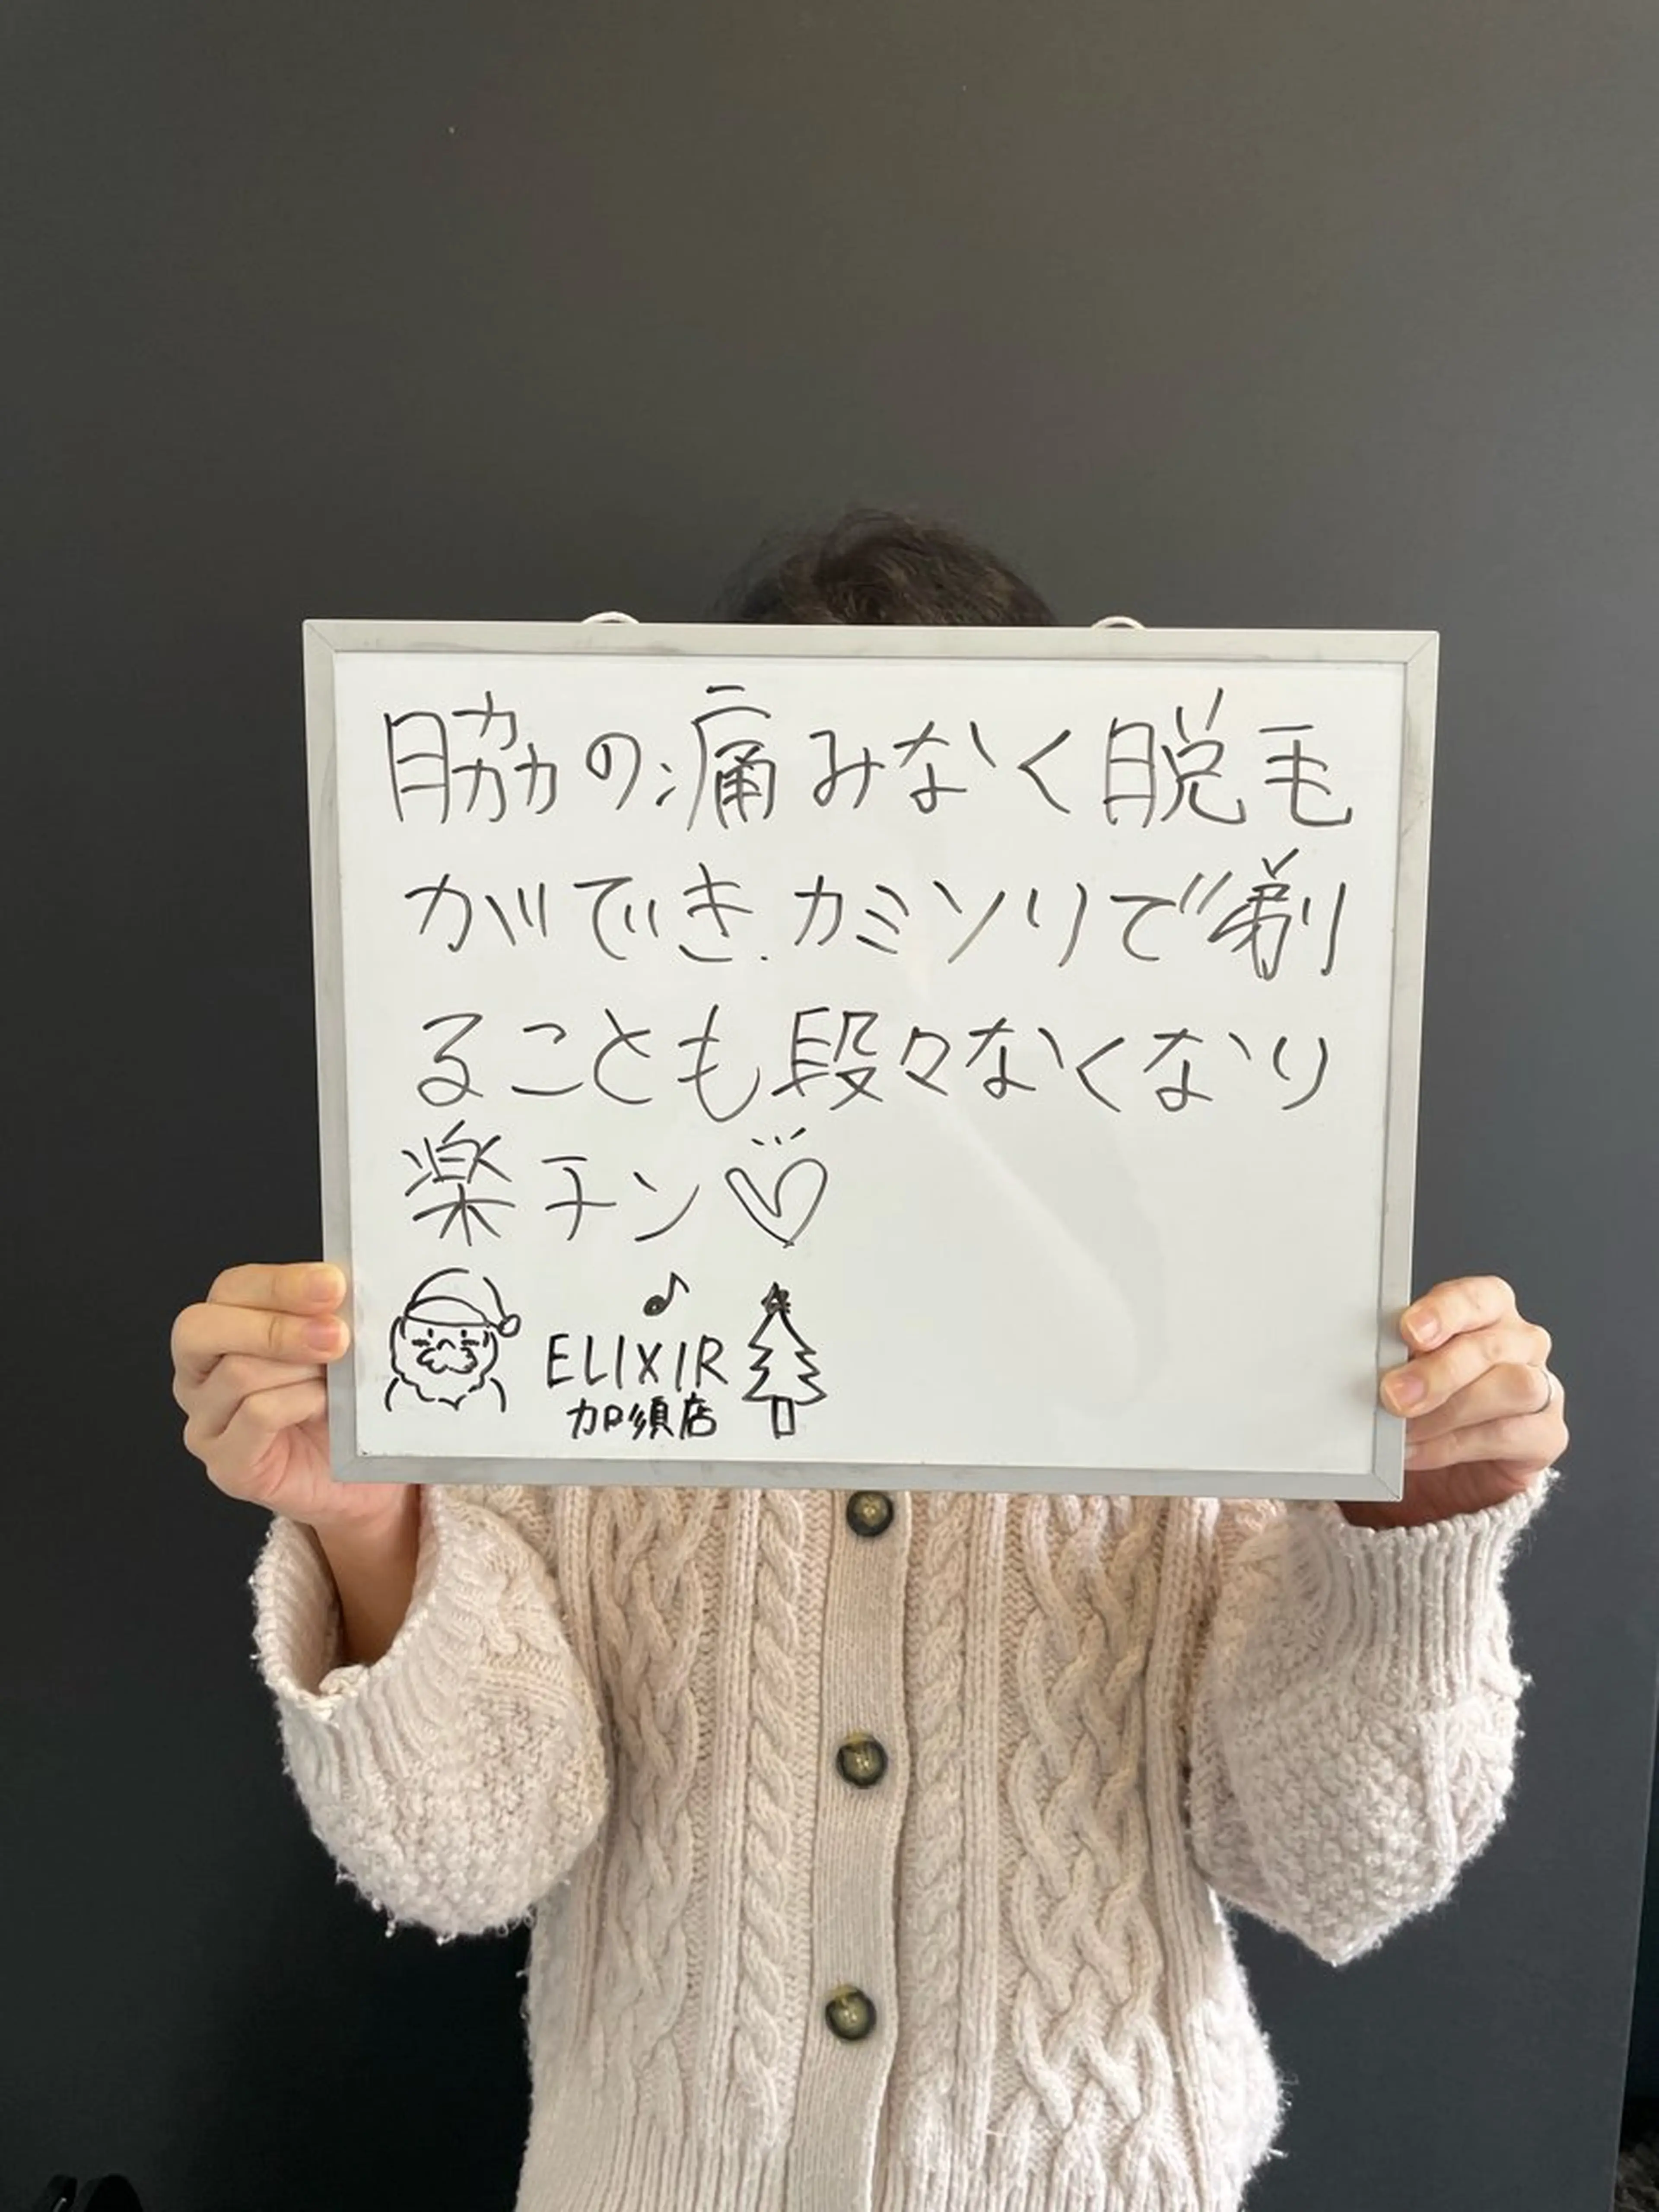 脇の痛みなく脱毛
ができ、カミソリで剃
ることも段々なくなり
楽チン♡
ELIXIR
加須店